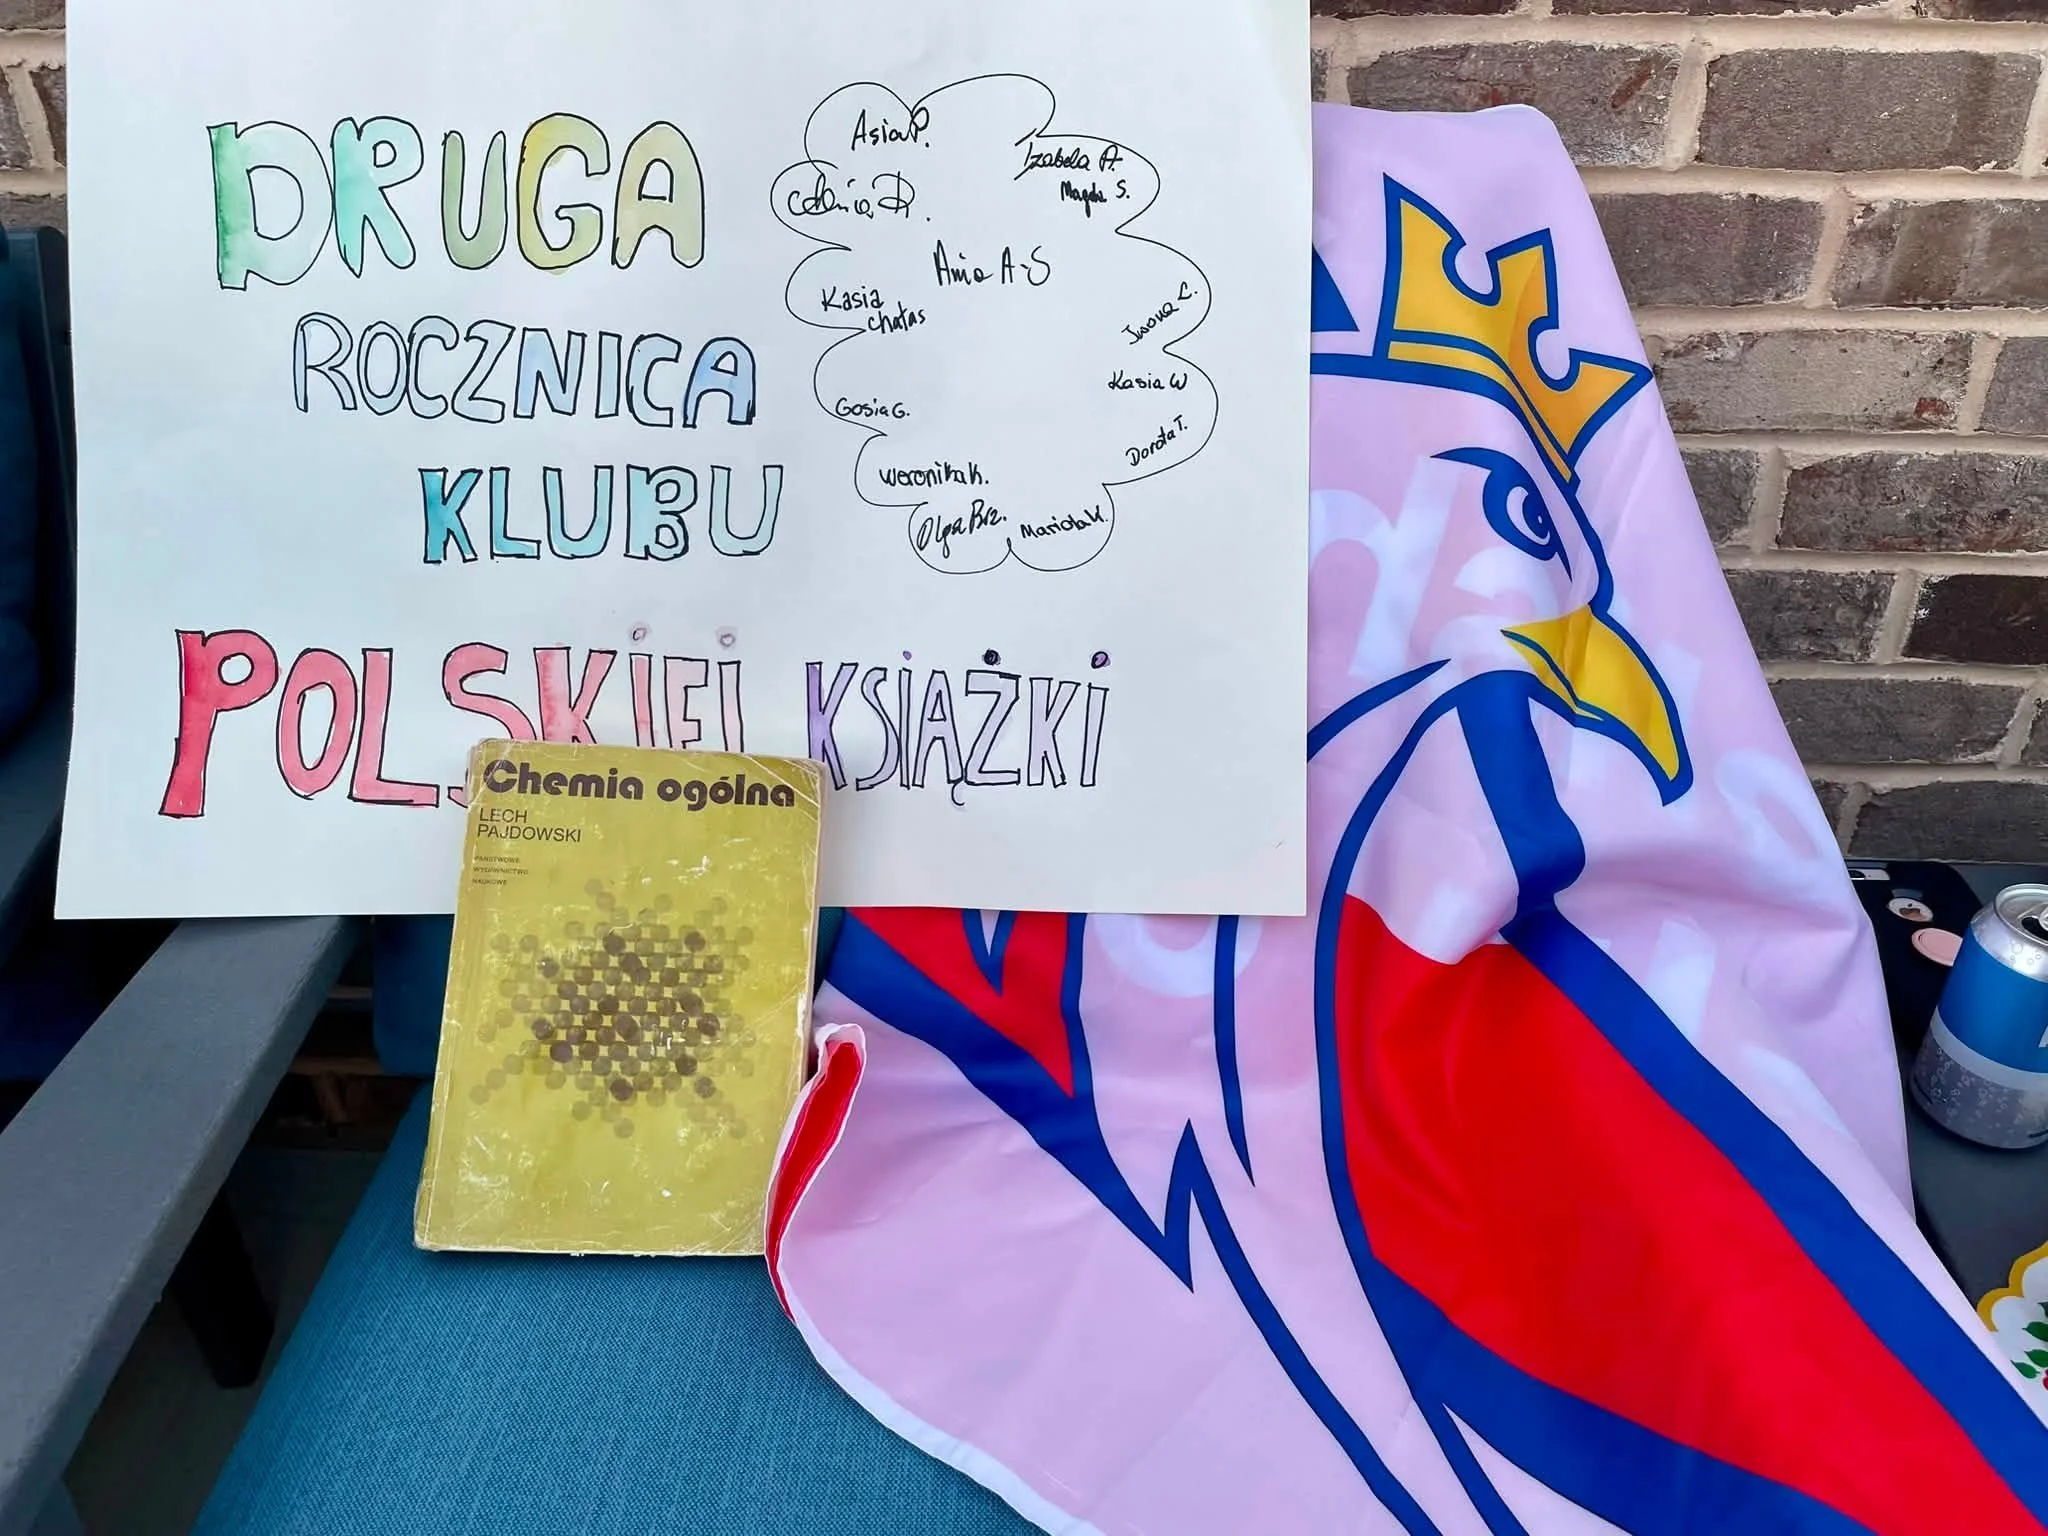 DRUGA
ROCZNICA
KLUBU
POLSKIEJ KSIĄŻKI
Asia P.
Izabela A.
Magda S.
Ania A-S
Kasia
Chałas
Iwona L.
Kasia W
Gosia G.
Dorota T.
Weronika K.
Olga Brz.
Mariola K.
Chemia ogólna
LECH
PAJDOWSKI
PAŃSTWOWE
WYDAWNICTWO
NAUKOWE